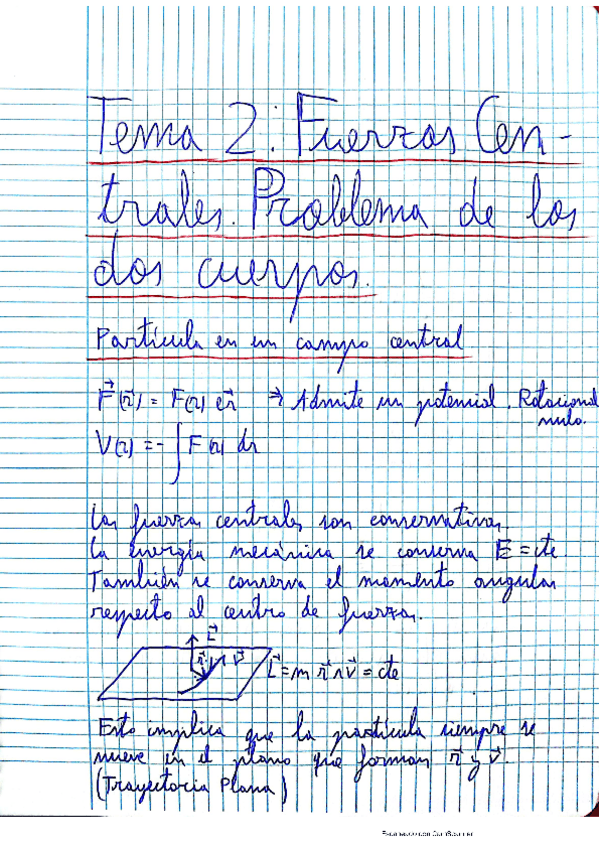 Tema 2: Fuerzas Cen-
trales. Problema de los
dos cuerpos.
Partícula en un campo central
F⃗(r⃗) = F(r) e⃗r → Admite un potencial. Rotacional
nulo.
V(r) = -∫ F(r) dr
Las fuerzas centrales son conservativas.
La energía mecánica se conserva E = cte
También se conserva el momento angular
respecto al centro de fuerzas.
L⃗
r⃗ v⃗
L⃗ = m r⃗ ∧ v⃗ = cte
Esto implica que la partícula siempre se
mueve en el plano que forman r⃗ y v⃗.
(Trayectoria Plana)
Escaneado con CamScanner